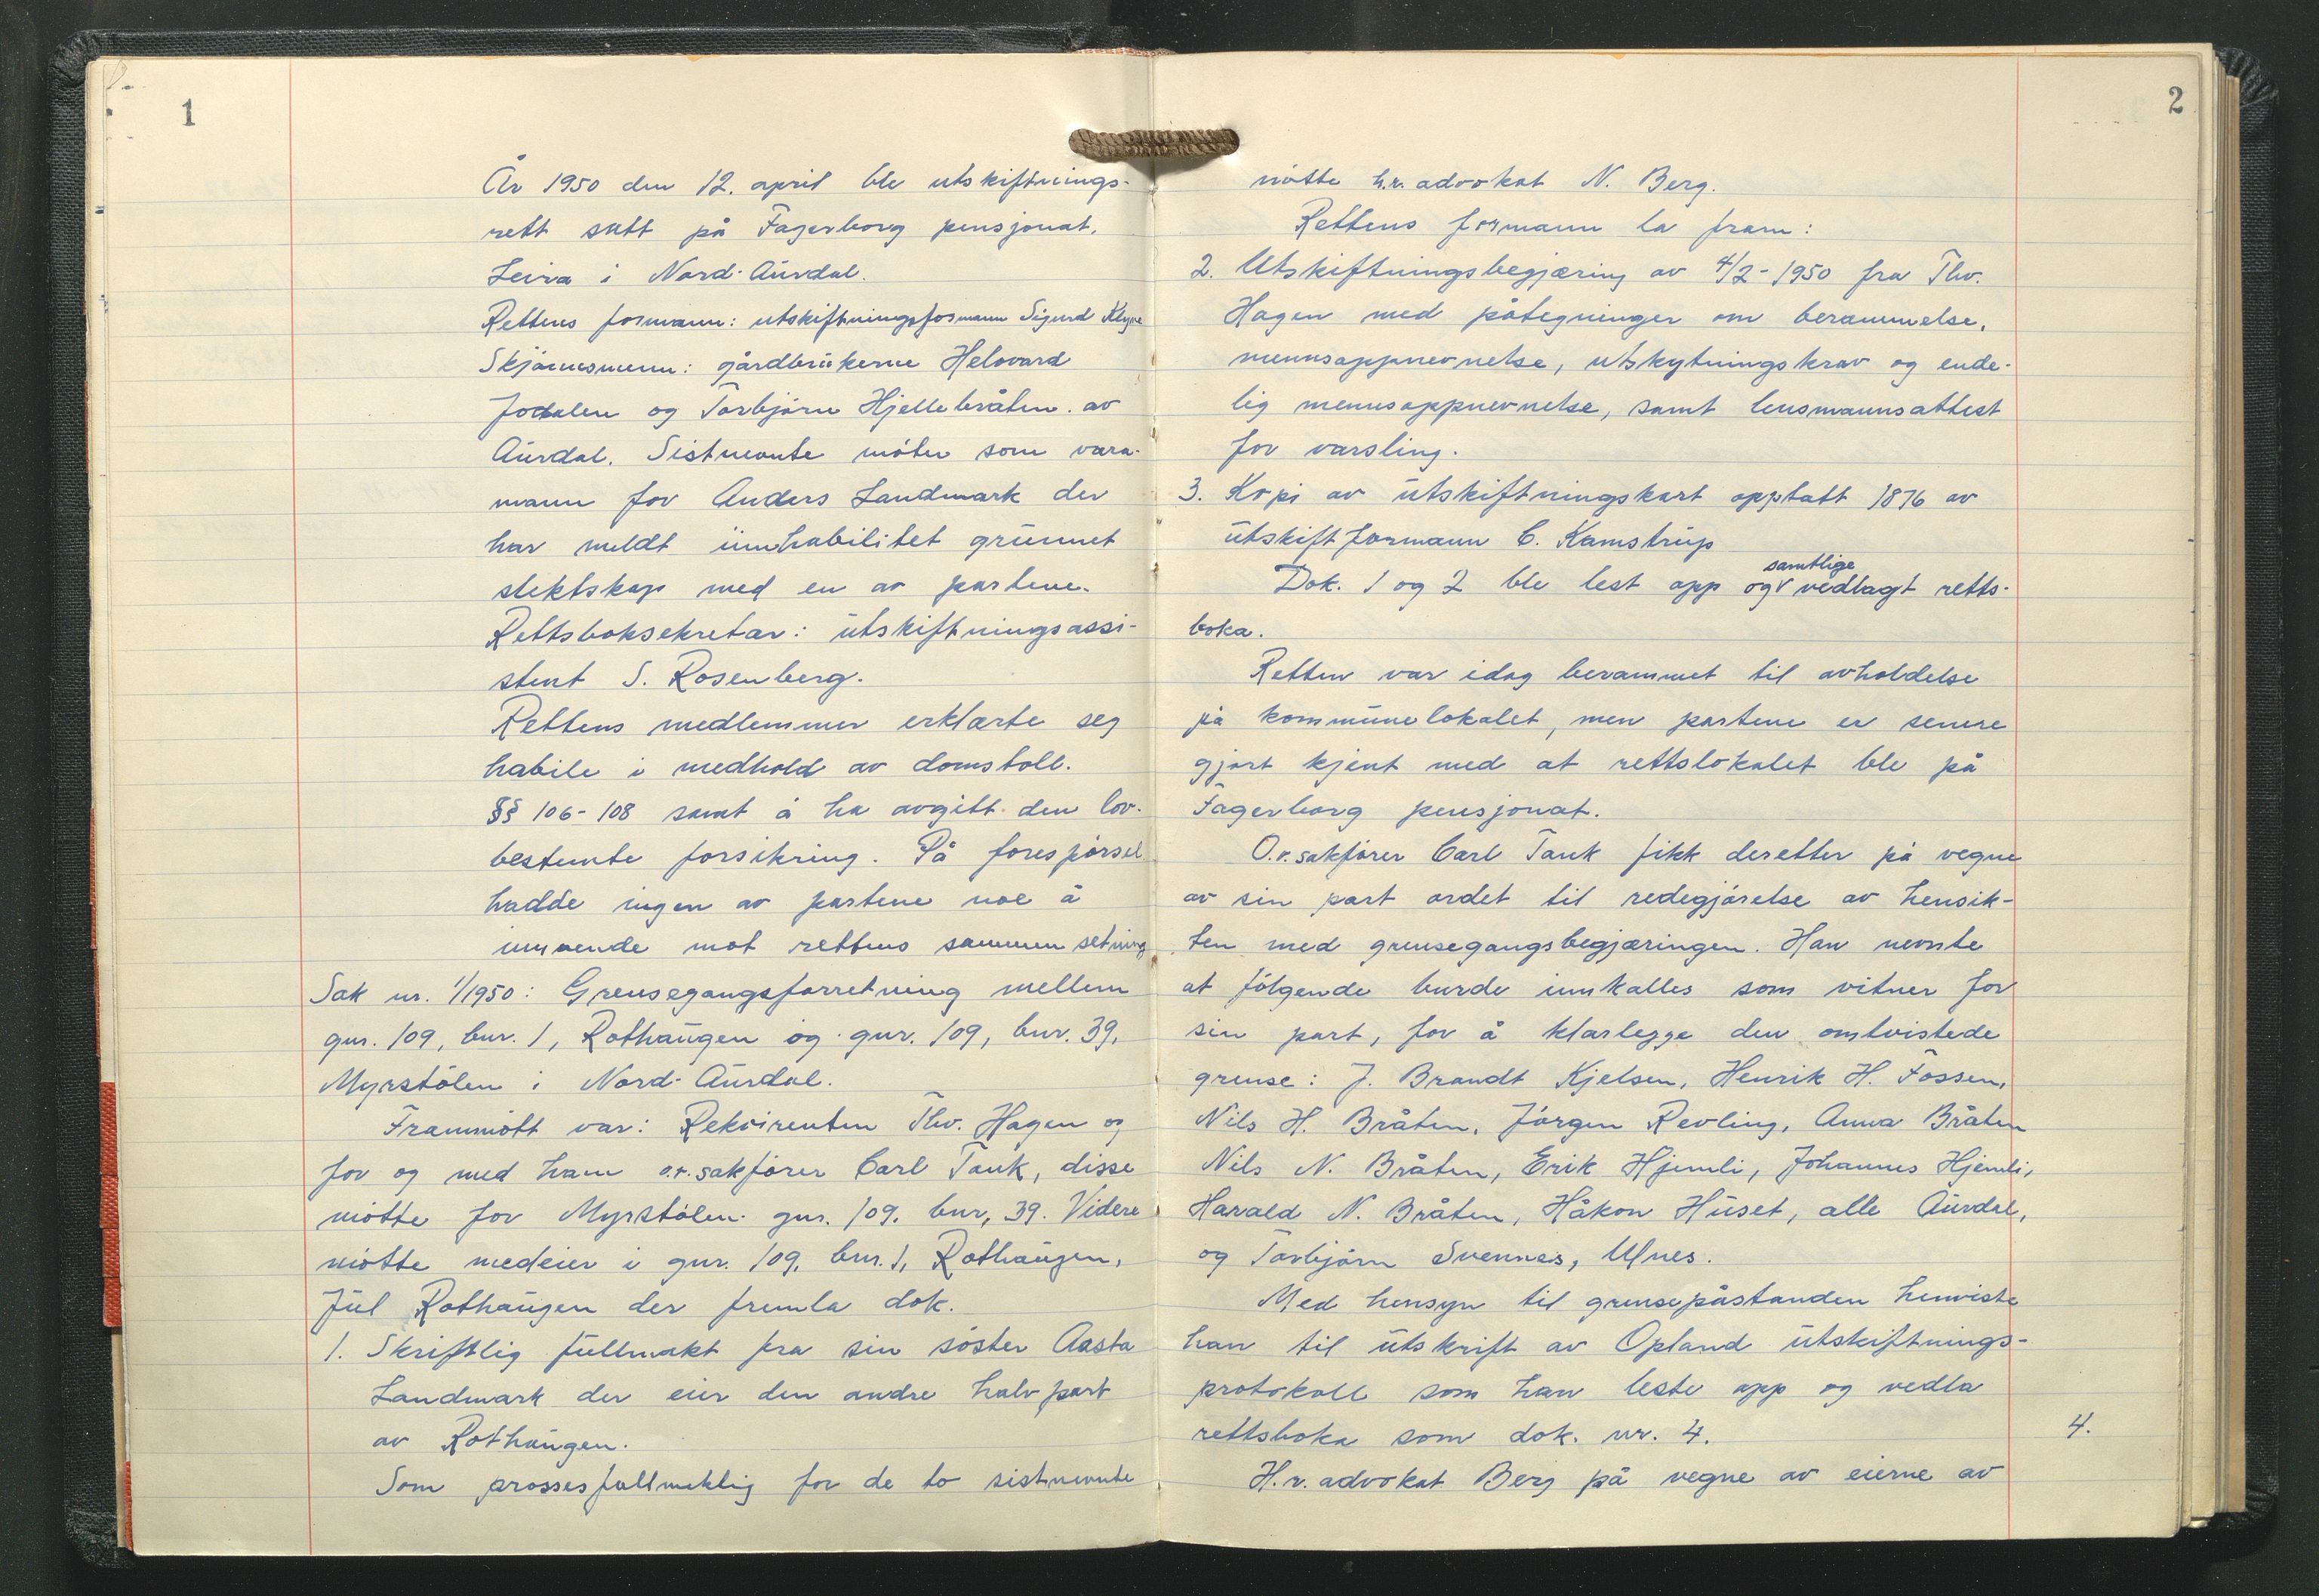 1
År 1950 den 12. april ble utskiftnings-
rett satt på Fagerborg pensjonat,
Leira i Nord-Aurdal.
Rettens formann: utskiftningsformann Sigurd Klype
Skjønnsmenn: gårdbrukerne Helovard
Jodalen og Torbjørn Hjellebråten av
Aurdal. Sistnevnte møter som vara-
mann for Anders Landmark der
har meldt innhabilitet grunnet
slektskap med en av partene.
Rettsboksekretær: utskiftningsassi-
stent S. Rosenberg.
Rettens medlemmer erklærte seg
habile i medhold av domstoll.
§§ 106-108 samt å ha avgitt den lov-
bestemte forsikring. På forespørsel
hadde ingen av partene noe å
innvende mot rettens sammensetning
Sak nr. 1/1950: Grensegangsforretning mellem
gnr. 109, bnr. 1, Rothaugen og gnr. 109, bnr. 39,
Myrstølen i Nord-Aurdal.
Frammøtt var: Rekvirenten Thv. Hagen og
for og med ham o.r.sakfører Carl Tank, disse
møtte for Myrstølen gnr. 109. bnr, 39. Videre
møtte medeier i gnr. 109, bnr. 1, Rothaugen,
Jul Rothaugen der fremla dok.
1. Skriftlig fullmakt fra sin søster Aasta
Landmark der eier den andre halvpart
av Rothaugen.
Som prossesfullmektig for de to sistnevnte
2
møtte h.r. advokat N. Berg.
Rettens formann la fram:
2. Utskiftningsbegjæring av 4/2-1950 fra Thv.
Hagen med påtegninger om berammelse,
mennsoppnevnelse, utskytningskrav og ende-
lig mennsoppnevnelse, samt lensmannsattest
for varsling.
3. Kopi av utskiftningskart opptatt 1876 av
utskiftformann C. Kamstrup
Dok. 1 og 2 ble lest opp og samtlige vedlagt retts-
boka.
Retten var idag berammet til avholdelse
på kommunelokalet, men partene er senere
gjort kjent med at rettslokalet ble på
Fagerborg pensjonat.
O.r.sakfører Carl Tank fikk deretter på vegne
av sin part ordet til redegjørelse av hensik-
ten med grensegangsbegjæringen. Han nevnte
at følgende burde innkalles som vitner for
sin part, for å klarlegge den omtvistede
grense: J. Brandt Kjelsen, Henrik H. Fossen,
Nils H. Bråten, Jørgen Revling, Anna Bråten
Nils N. Bråten, Erik Hjemli, Johannes Hjemli,
Harald N. Bråten, Håkon Huset, alle Aurdal,
og Torbjørn Svennes, Ulnes.
Med hensyn til grensepåstanden henviste
han til utskrift av Opland utskiftnings-
protokoll som han leste opp og vedla
rettsboka som dok. nr. 4.
4.
H.r. advokat Berg på vegne av eierne av